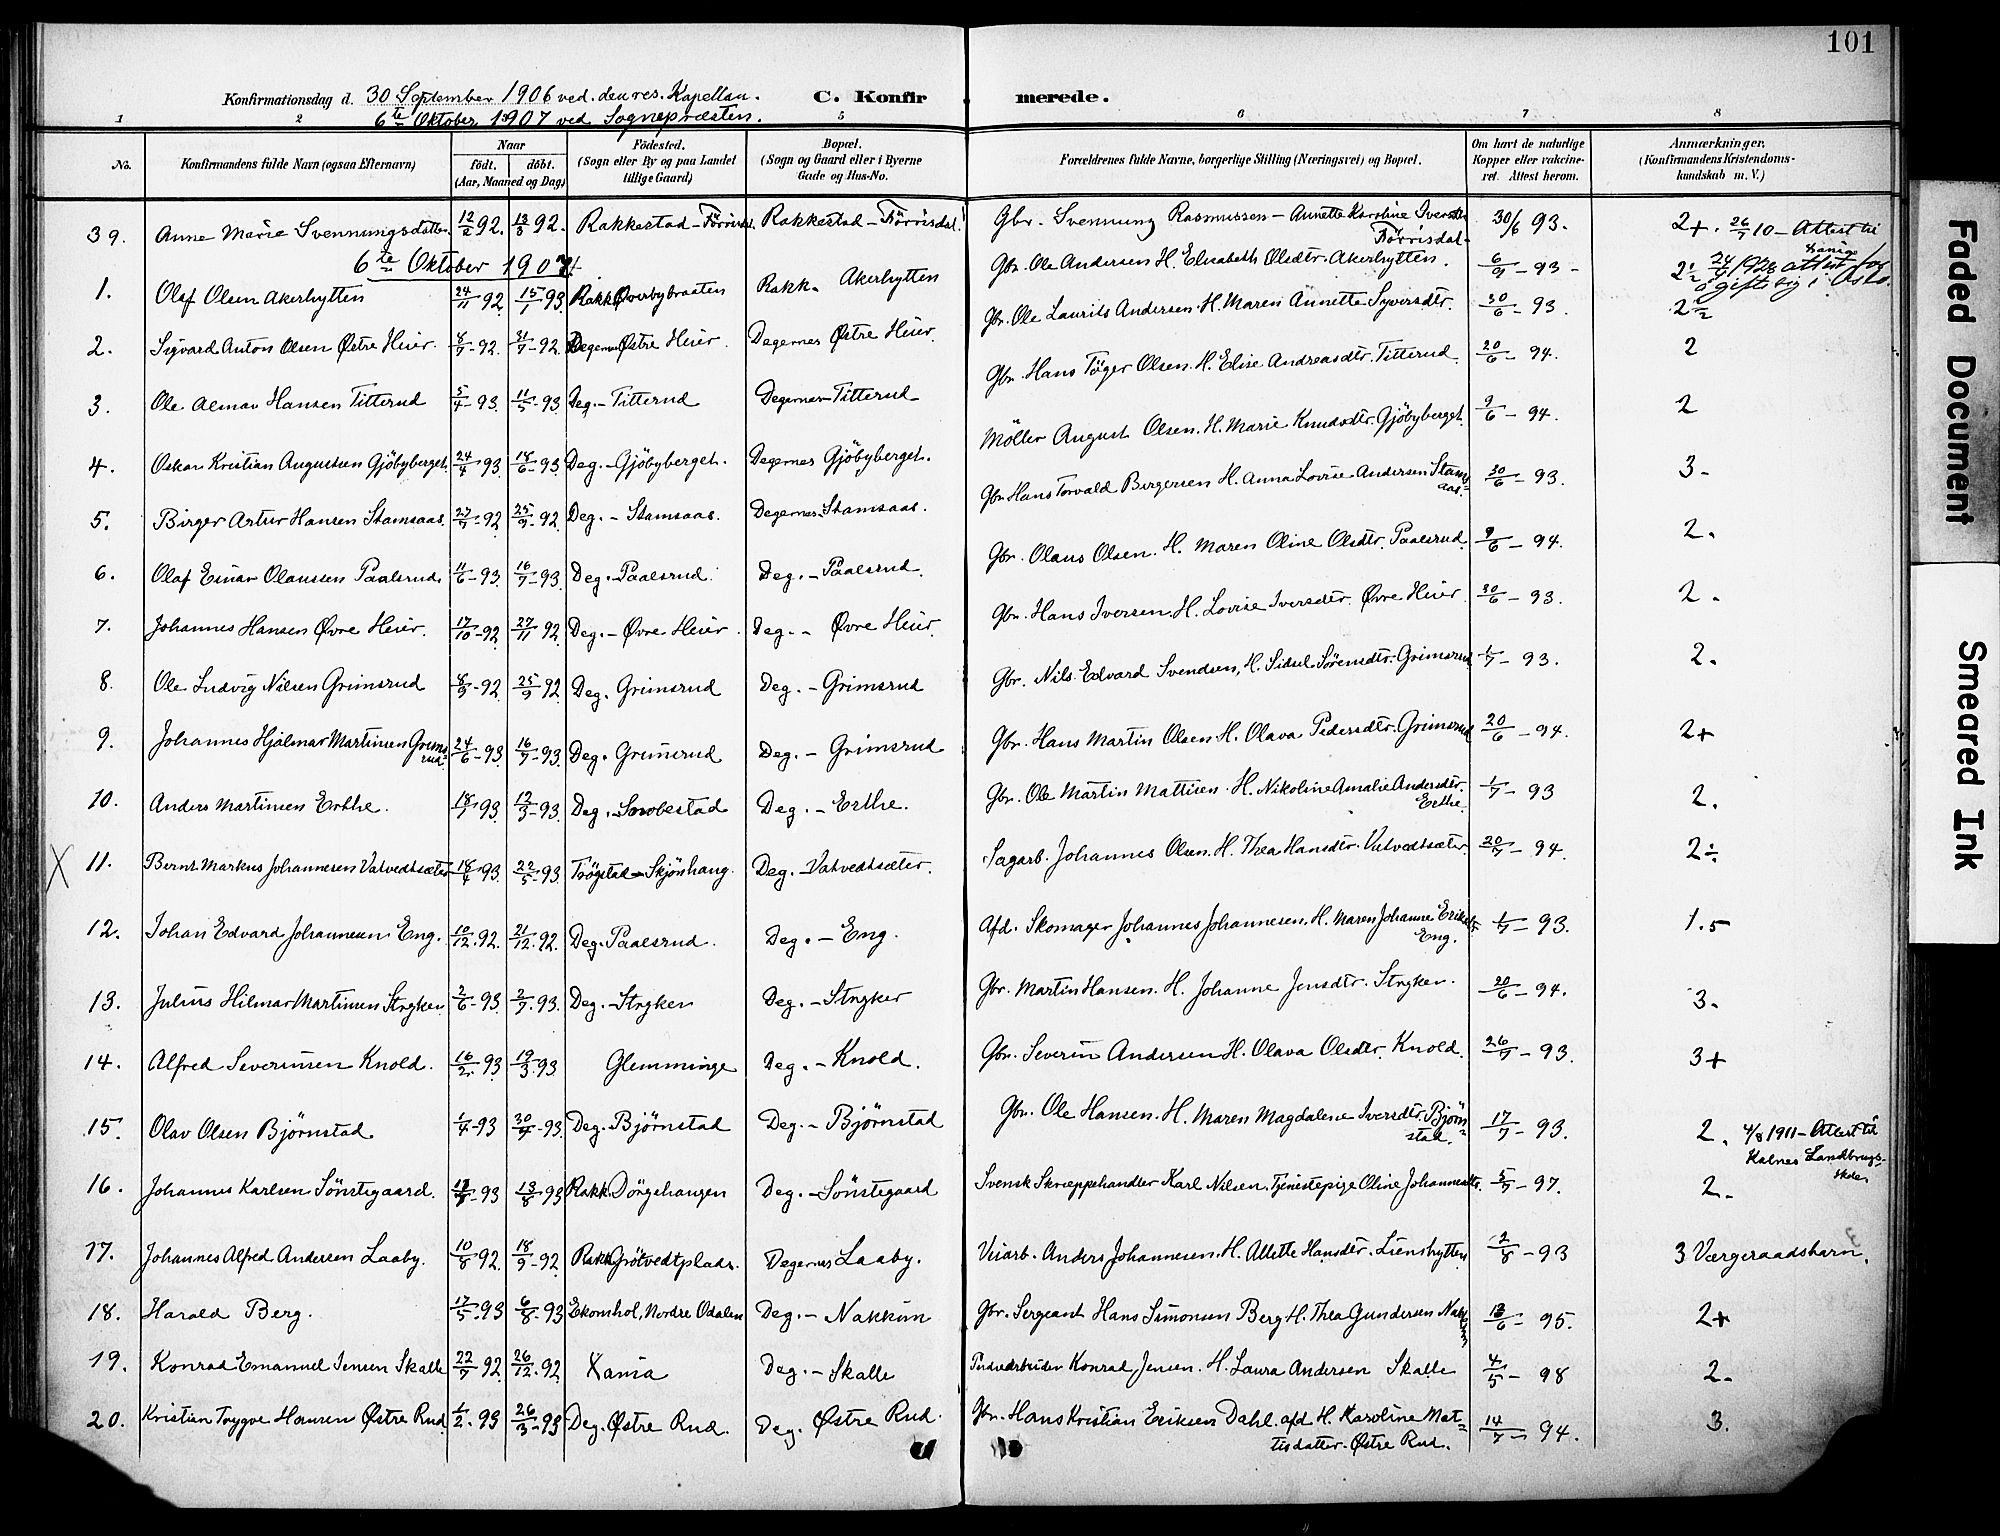 101
Konfirmationsdag d. 30 September 1906 ved den res. Kapellan. C. Konfirmerede.
6te Oktober 1907 ved Sognepræsten.
1 2 5 6 7 8
No. Konfirmandens fulde Navn (ogsaa Efternavn) Naar født. døbt. (Aar, Maaned og Dag) Födested. (Sogn eller By og paa Landet tillige Gaard) Bopæl. (Sogn og Gaard eller i Byerne Gade og Hus-No. Forældrenes fulde Navne, borgerlige Stilling (Næringsvei) og Bopæl. Om havt de naturlige Kopper eller vakcineret. Attest herom. Anmærkninger. (Konfirmandens Kristendomskundskab m. V.)
39. Anne Marie Svennungsdatter 12/2 92. 13/3 92. Rakkestad - Rakkestad - Förrisdal. Gbr. Svennung Rasmussen - Annette Karoline Iversdtr. Förrisdal. 30/6 93. 2+. 26/7 10 - Attest til Xania
6te Oktober 1907
1. Olaf Olsen Akerhytten 24/11 92 15/1 93 Rakk. Øverbybraaten Rakk. Akerhytten Gbr. Ole Andersen H. Elisabeth Olsdtr. Akerhytten. 6/9 - 93 - 2½ 24/9 1928 attest for å gifte sig i Oslo.
2. Sigvard Anton Olsen Østre Heier. 8/7 - 92. 31/7 - 92 Degernes Østre Heier. Degernes Østre Heier. Gbr. Ole Laurits Andersen. H. Maren Annette Syversdtr. 30/6 - 93. 2½
3. Ole Almar Hansen Titterud 5/4 - 93. 11/5 - 93. Deg. - Titterud Degernes Titterud Gbr. Hans Töger Olsen. H. Elise Andreasdtr. Titterud. 20/6 - 94. 2
4. Oskar Kristian Augustsen Gjöbyberget. 24/4 93. 18/6 - 93. Deg. - Gjöbyberget. Degernes Gjöbyberget. Möller August Olsen. H. Marie Knudsdtr. Gjöbyberget. 9/6 - 94. 2
5. Birger Artur Hansen Stamsaas. 27/7 - 92 25/9 - 92. Deg. - Stamsaas. Degernes - Stamsaas. Gbr. Hans Torvald Birgersen H. Anna Lovise Andersen Stamsaas. 30/6 - 93. 3-
6. Olaf Einar Olaussen Paalsrud. 11/6 - 93. 16/7 - 93. Deg. - Paalsrud. Deg. - Paalsrud. Gbr. Olaus Olsen. H. Maren Oline Olsdtr. Paalsrud. 9/6 - 94. 2.
7. Johannes Hansen Øvre Heier. 17/10 - 92 27/11 92. Deg. - Øvre Heier. Deg. - Øvre Heier. Gbr. Hans Iversen. H. Lovise Iversdtr. Øvre Heier. 30/6 - 93. 2.
8. Ole Ludvig Nilsen Grimsrud 8/9 - 92 25/9 92 Deg. Grimsrud Deg. - Grimsrud Gbr. Nils Edvard Svendsen, H. Sidsel Sörensdtr. Grimsrud 1/7 - 93. 2.
9. Johannes Hjalmar Martinsen Grimsrud 24/6 - 93. 16/7 - 93. Deg. Grimsrud Deg. - Grimsrud Gbr. Hans Martin Olsen. H. Olava Pedersdtr. Grimsrud 20/6 - 94. 2+
10. Anders Martinsen Erthe. 18/1 93. 12/3 - 93. Deg. Deg. - Erthe. Gbr. Ole Martin Mattisen. H. Nikoline Amalie Andersdtr. Erthe. 1/7 - 93 2.
X 11. Bernt Markus Johannesen Vatvedtsæter 18/4 93. 22/5 - 93. Trögstad - Skjönhaug. Deg. - Vatvedtsæter. Sagarb. Johannes Olsen. H. Thea Hansdtr. Vatvedtsæter. 20/7 - 94. 2÷
12. Johan Edvard Johannesen Eng. 10/12. 92. 21/12. 92. Deg. Paalsrud. Deg. - Eng. Afd. Skomager Johannes Johannesen. H. Maren Johanne Eriksdtr. Eng. 1/7 - 93. 1.5
13. Julius Hilmar Martinsen Stryken 2/6 - 93. 2/7. 93. Deg. - Stryken Deg. - Stryker Gbr. Martin Hansen. H. Johanne Jensdtr. Stryker. 20/6 - 94. 3.
14. Alfred Severinsen Knold. 16/2. 93 19/3. 93 Glemminge Deg. - Knold. Gbr. Severin Andersen H. Olava Olsdtr. Knold. 26/7 - 93. 3+
15. Olav Olsen Bjørnstad. 1/4 - 93 30/4 - 93. Deg. Bjørnstad Deg. - Bjørnstad Gbr. Ole Hansen. H. Maren Magdalene Iversdtr. Bjørnstad. 17/7 - 93. 2. 4/8 1911 - Attest til Kalnes Landbrugsskole.
16. Johannes Karlsen Sönstegaard. - 93 13/8 93 Rakk. Dörgehaugen Deg. - Sönstegaard Svensk Skræppehandler Karl Nilsen. Tjenestepige Oline Johannesdtr. 5/7 - 97. 2.
17. Johannes Alfred Andersen Laaby. 10/8 92. 18/9 - 92. Rakk. Grötvedtplads. Degernes Laaby. Veiarb. Anders Johannesen. H. Allette Hansdtr. Lienshytten 12/8 - 93 3 Værgeraadsbarn.
18. Harald Berg. 17/5 - 93 6/8 - 93 Ekornhol, Nordre Odalen Deg. - Nakkim Gbr. Sergeant Hans Simonsen Berg H. Thea Gundersen 13/6 - 95. 2+
19. Konrad Emanuel Jensen Skalle 22/7 92. 26/12. 92 Xania Deg. - Skalle Konrad Jensen. H. Laura Andersen Skalle 4/5 - 98 2.
20. Kristian Trygve Hansen Østre Rud. 1/2. 93 26/3 - 93 Deg. Østre Rud. Deg. Østre Rud. Gbr. Hans Kristian Eriksen Dahl. afd H. Karoline Mattisdatter. Østre Rud. 14/7 - 94. 3.
Faded Document
Smeared Ink